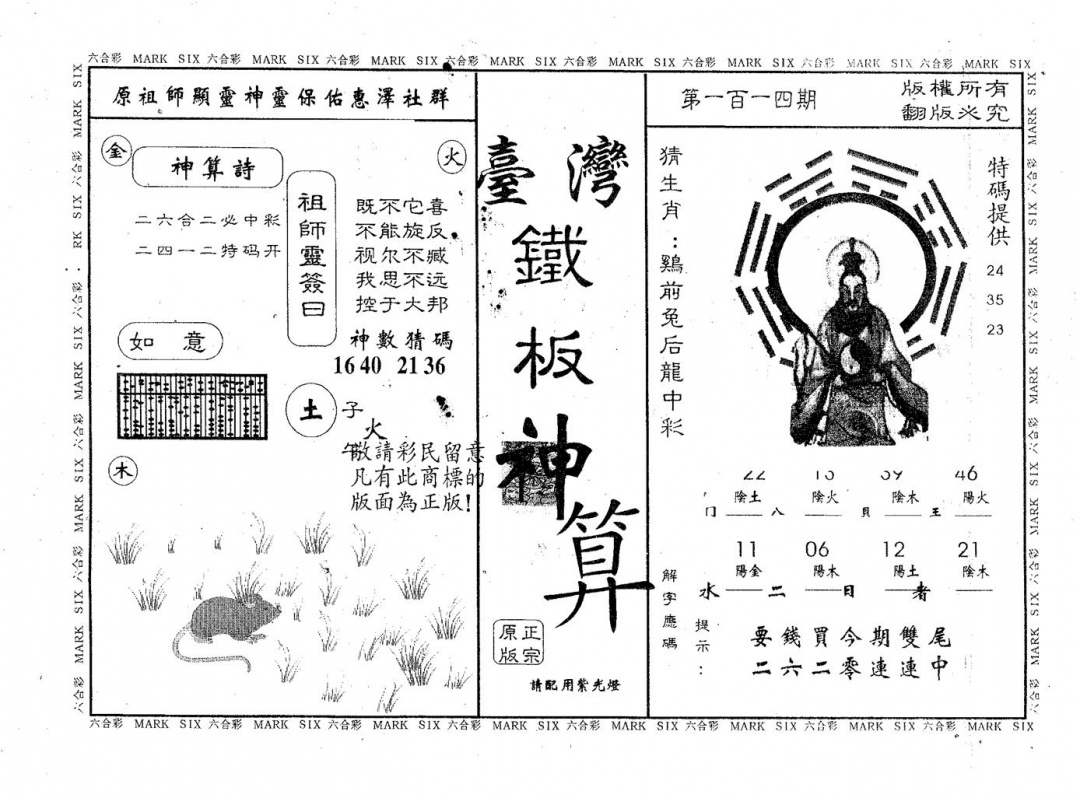 六合彩 MARK SIX 六合彩 MARK SIX 六合彩 MARK SIX 六合彩 MARK SIX 六合彩 MARK SIX 六合彩 MARK SIX 六合彩 MARK SIX 六合彩 MARK SIX
原祖師顯靈神靈保佑惠澤社群
金
火
神算詩
二六合二必中彩
二四一二特码开
祖師靈簽曰
既不它喜
不能旋反
视尔不臧
我思不远
控于大邦
神數猜碼
16 40 21 36
如意
土
子
火
午
木
敬請彩民留意
凡有此商標的
版面為正版!
臺灣
鐵
板
神
算
正宗
原版
請配用紫光燈
第一百一四期
版權所有
翻版必究
猜生肖:鷄前兔后龍中彩
特碼提供
24
35
23
22 46
陰土 陰火 陰木 陽火
門 八 貝 王
11 06 12 21
陽金 陽木 陽土 陰木
水 二 日 者
解字應碼
提示:
要錢買今期雙尾
二六二零連連中
六合彩 MARK SIX 六合彩 MARK SIX 六合彩 MARK SIX 六合彩 MARK SIX 六合彩 MARK SIX 六合彩 MARK SIX 六合彩 MARK SIX 六合彩 MARK SIX